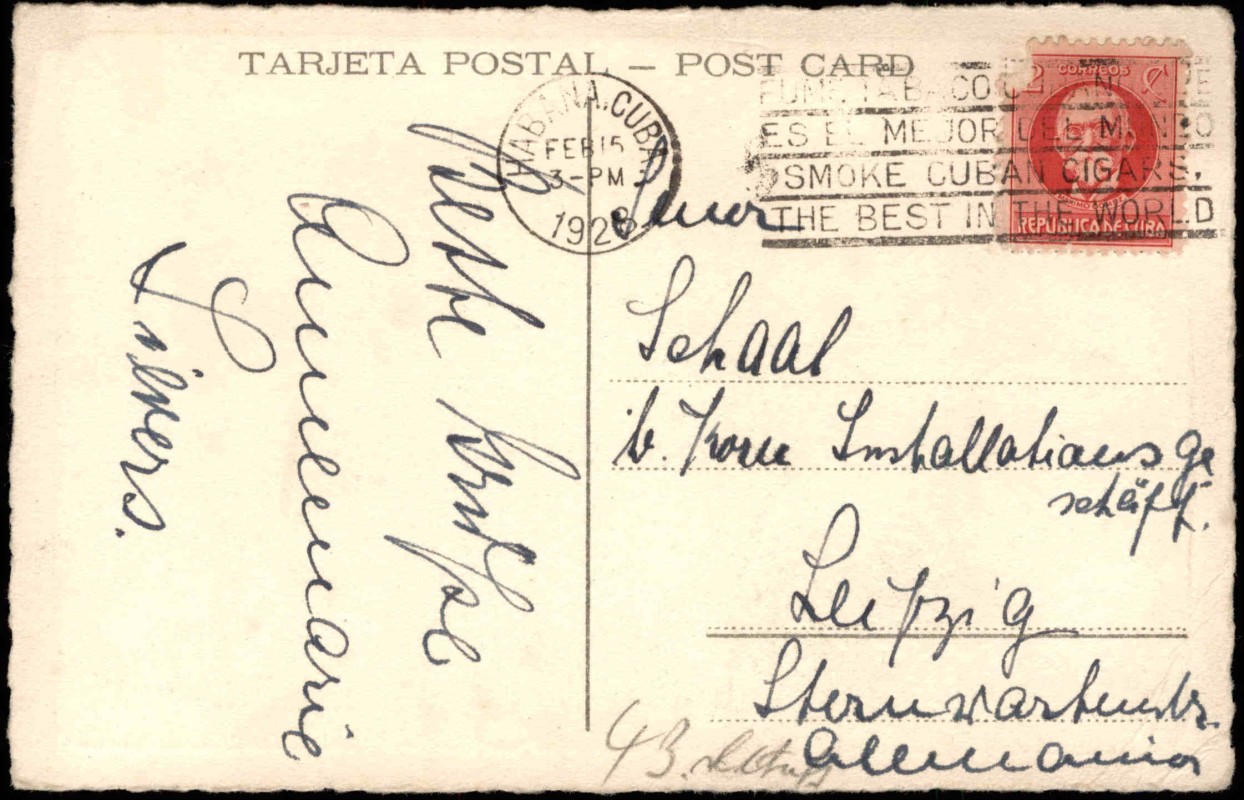 TARJETA POSTAL — POST CARD
HABANA, CUBA
FEB 15
3-PM
1928
FUME TABACO
ES EL MEJOR DEL MUNDO
SMOKE CUBAN CIGARS,
THE BEST IN THE WORLD
CORREOS
2
REPUBLICA DE CUBA
Beste Grüße
Annemarie
Sievers.
Senor
Schaal
b. Korn Installationsge
schäft.
Leipzig
Sternwartenstr.
43.
Allemania